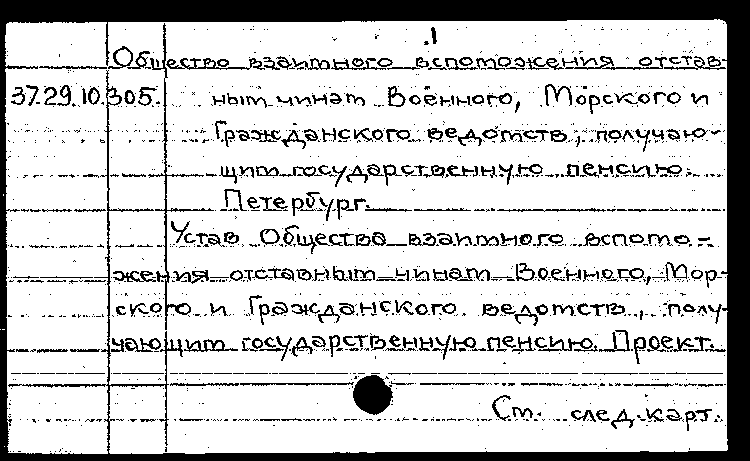 .1
Общество взаимного вспоможения отстав-
37.29.10.305. ным чинам Военного, Морского и
Гражданского ведомств, получаю-
щим государственную пенсию.
Петербург.
Устав Общества взаимного вспомо-
жения отставным чинам Военного, Мор-
ского и Гражданского ведомств, полу-
чающим государственную пенсию. Проект.
См. след. карт.